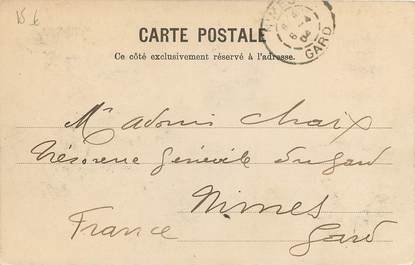 15 €
CARTE POSTALE
Ce côté exclusivement réservé à l'adresse.
GARD
Mr Adonis Chaix
Trésorerie Générale du Gard
Nimes
France
Gard